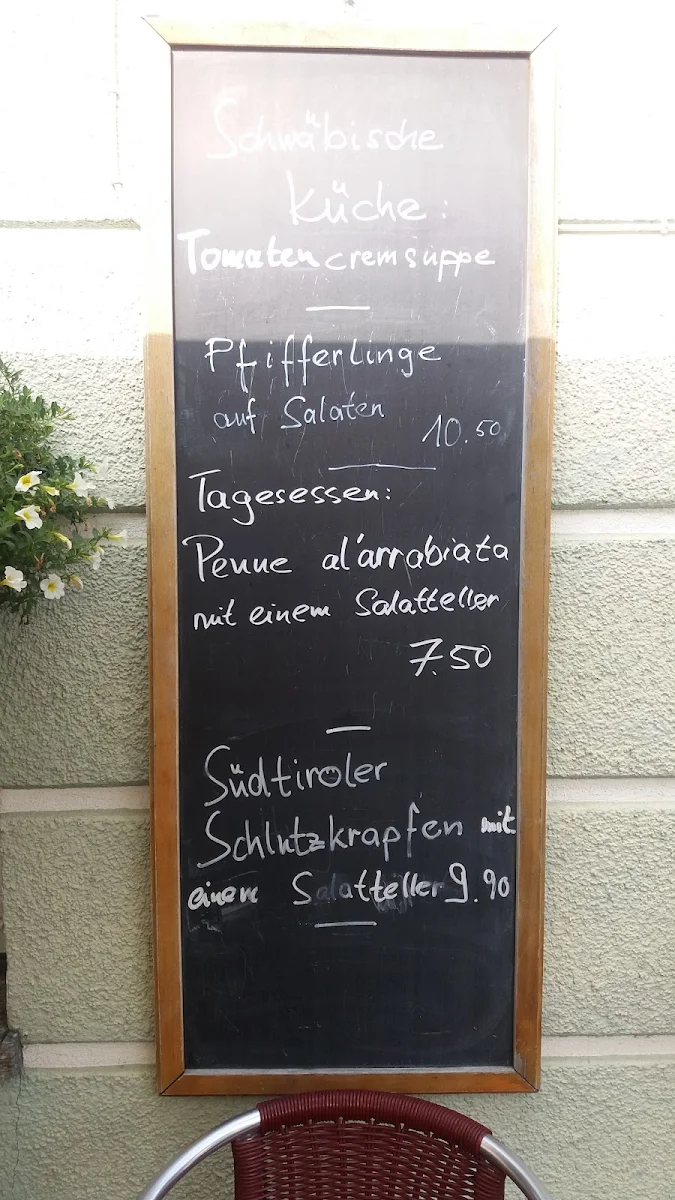 Schwäbische
Küche:
Tomatencremsuppe
Pfifferlinge
auf Salaten
10.50
Tagesessen:
Penne al'arrabiata
mit einem Salatteller
7.50
Südtiroler
Schlutzkrapfen mit
einem Salatteller 9.90